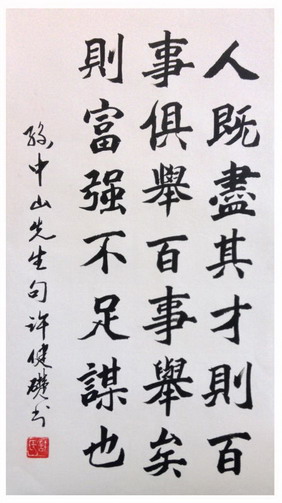 人既盡其才則百
事俱舉百事舉矣
則富强不足謀也
孫中山先生句许健书